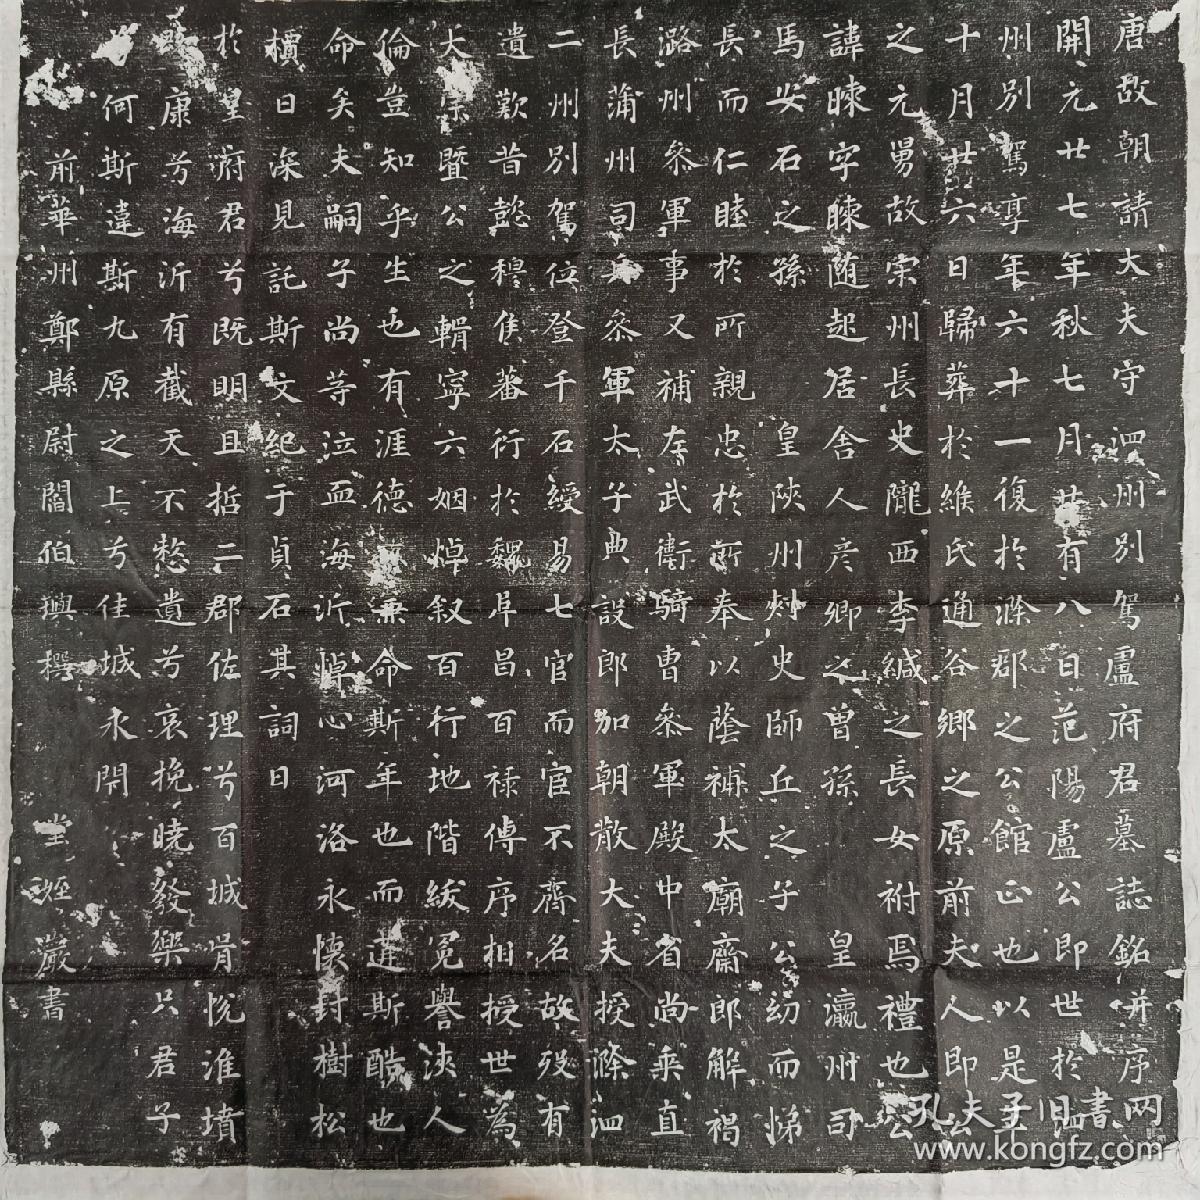 唐故朝請大夫守泗州別駕盧府君墓誌銘并序
開元廿七年秋七月廿有八日范陽盧公即世於泗
州別駕享年六十一復於滁郡之公館正也以是年
十月廿六日歸葬於緱氏通谷鄉之原前夫人即公
之元舅故宋州長史隴西李緘之長女祔焉禮也公
諱暕字暕隨起居舍人彥卿之曾孫 皇瀛州司
馬安石之孫 皇陝州刾史師丘之子公幼而悌
長而仁睦於所親忠於所奉以蔭補太廟齋郎解褐
潞州叅軍事又補左武衛騎曹叅軍殿中省尚乘直
長蒲州司兵叅軍太子典設郎加朝散大夫授滁泗
二州別駕位登千石綬易七官而宦不齊名故歿有
遺歎昔懿穆隹蕃衍於魏阜昌百祿傳序相授世為
大宗暨公之輯寧六姻焯叙百行地階紱冕譽浹人
倫豈知乎生也有涯德無兼命斯年也而遘斯酷也
命矣夫嗣子尚等泣血海沂悼心河洛永懷封樹松
檟日深見託斯文紀于貞石其詞曰
於皇府君兮既明且哲二郡佐理兮百城胥悅淮墳
康兮海沂有截天不憖遺兮哀挽曉發樂只君子
兮何斯違斯九原之上兮佳城永閇
前華州鄭縣尉閻伯璵撰 堂姪巖書
孔夫子旧書网
www.kongfz.com